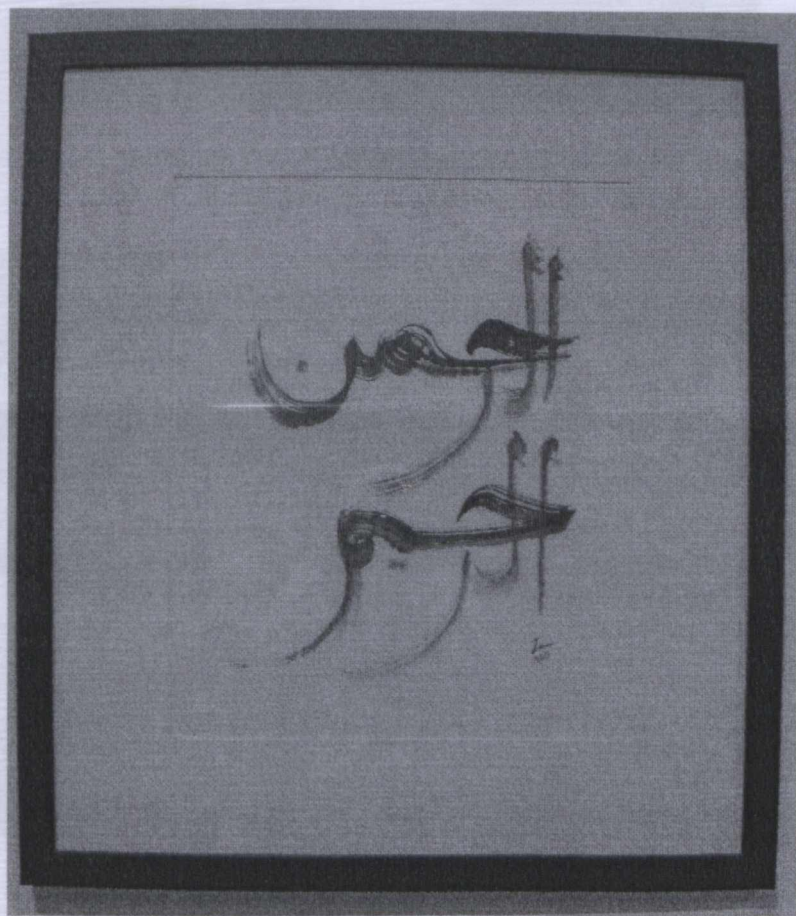 الرحمن
الرحيم